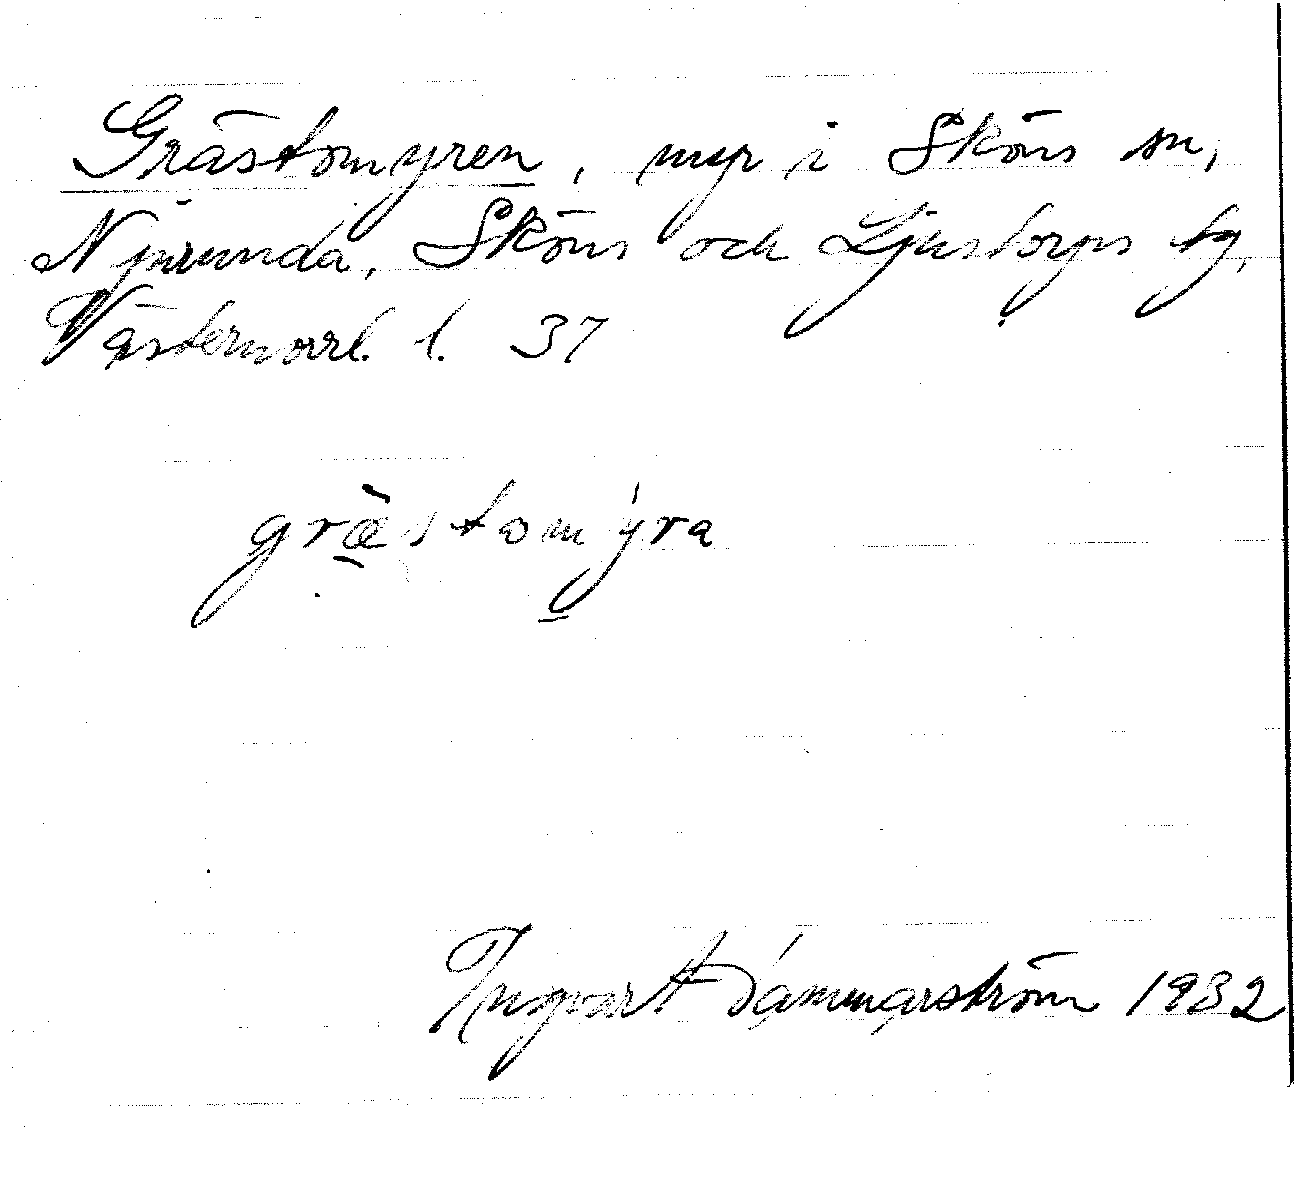 Grästomyren, myr i Sköns sn,
Njurunda, Sköns och Ljustorps tg,
Västernorrl. l. 37
græ̀stomýra
Ingvar Hammarström 1932